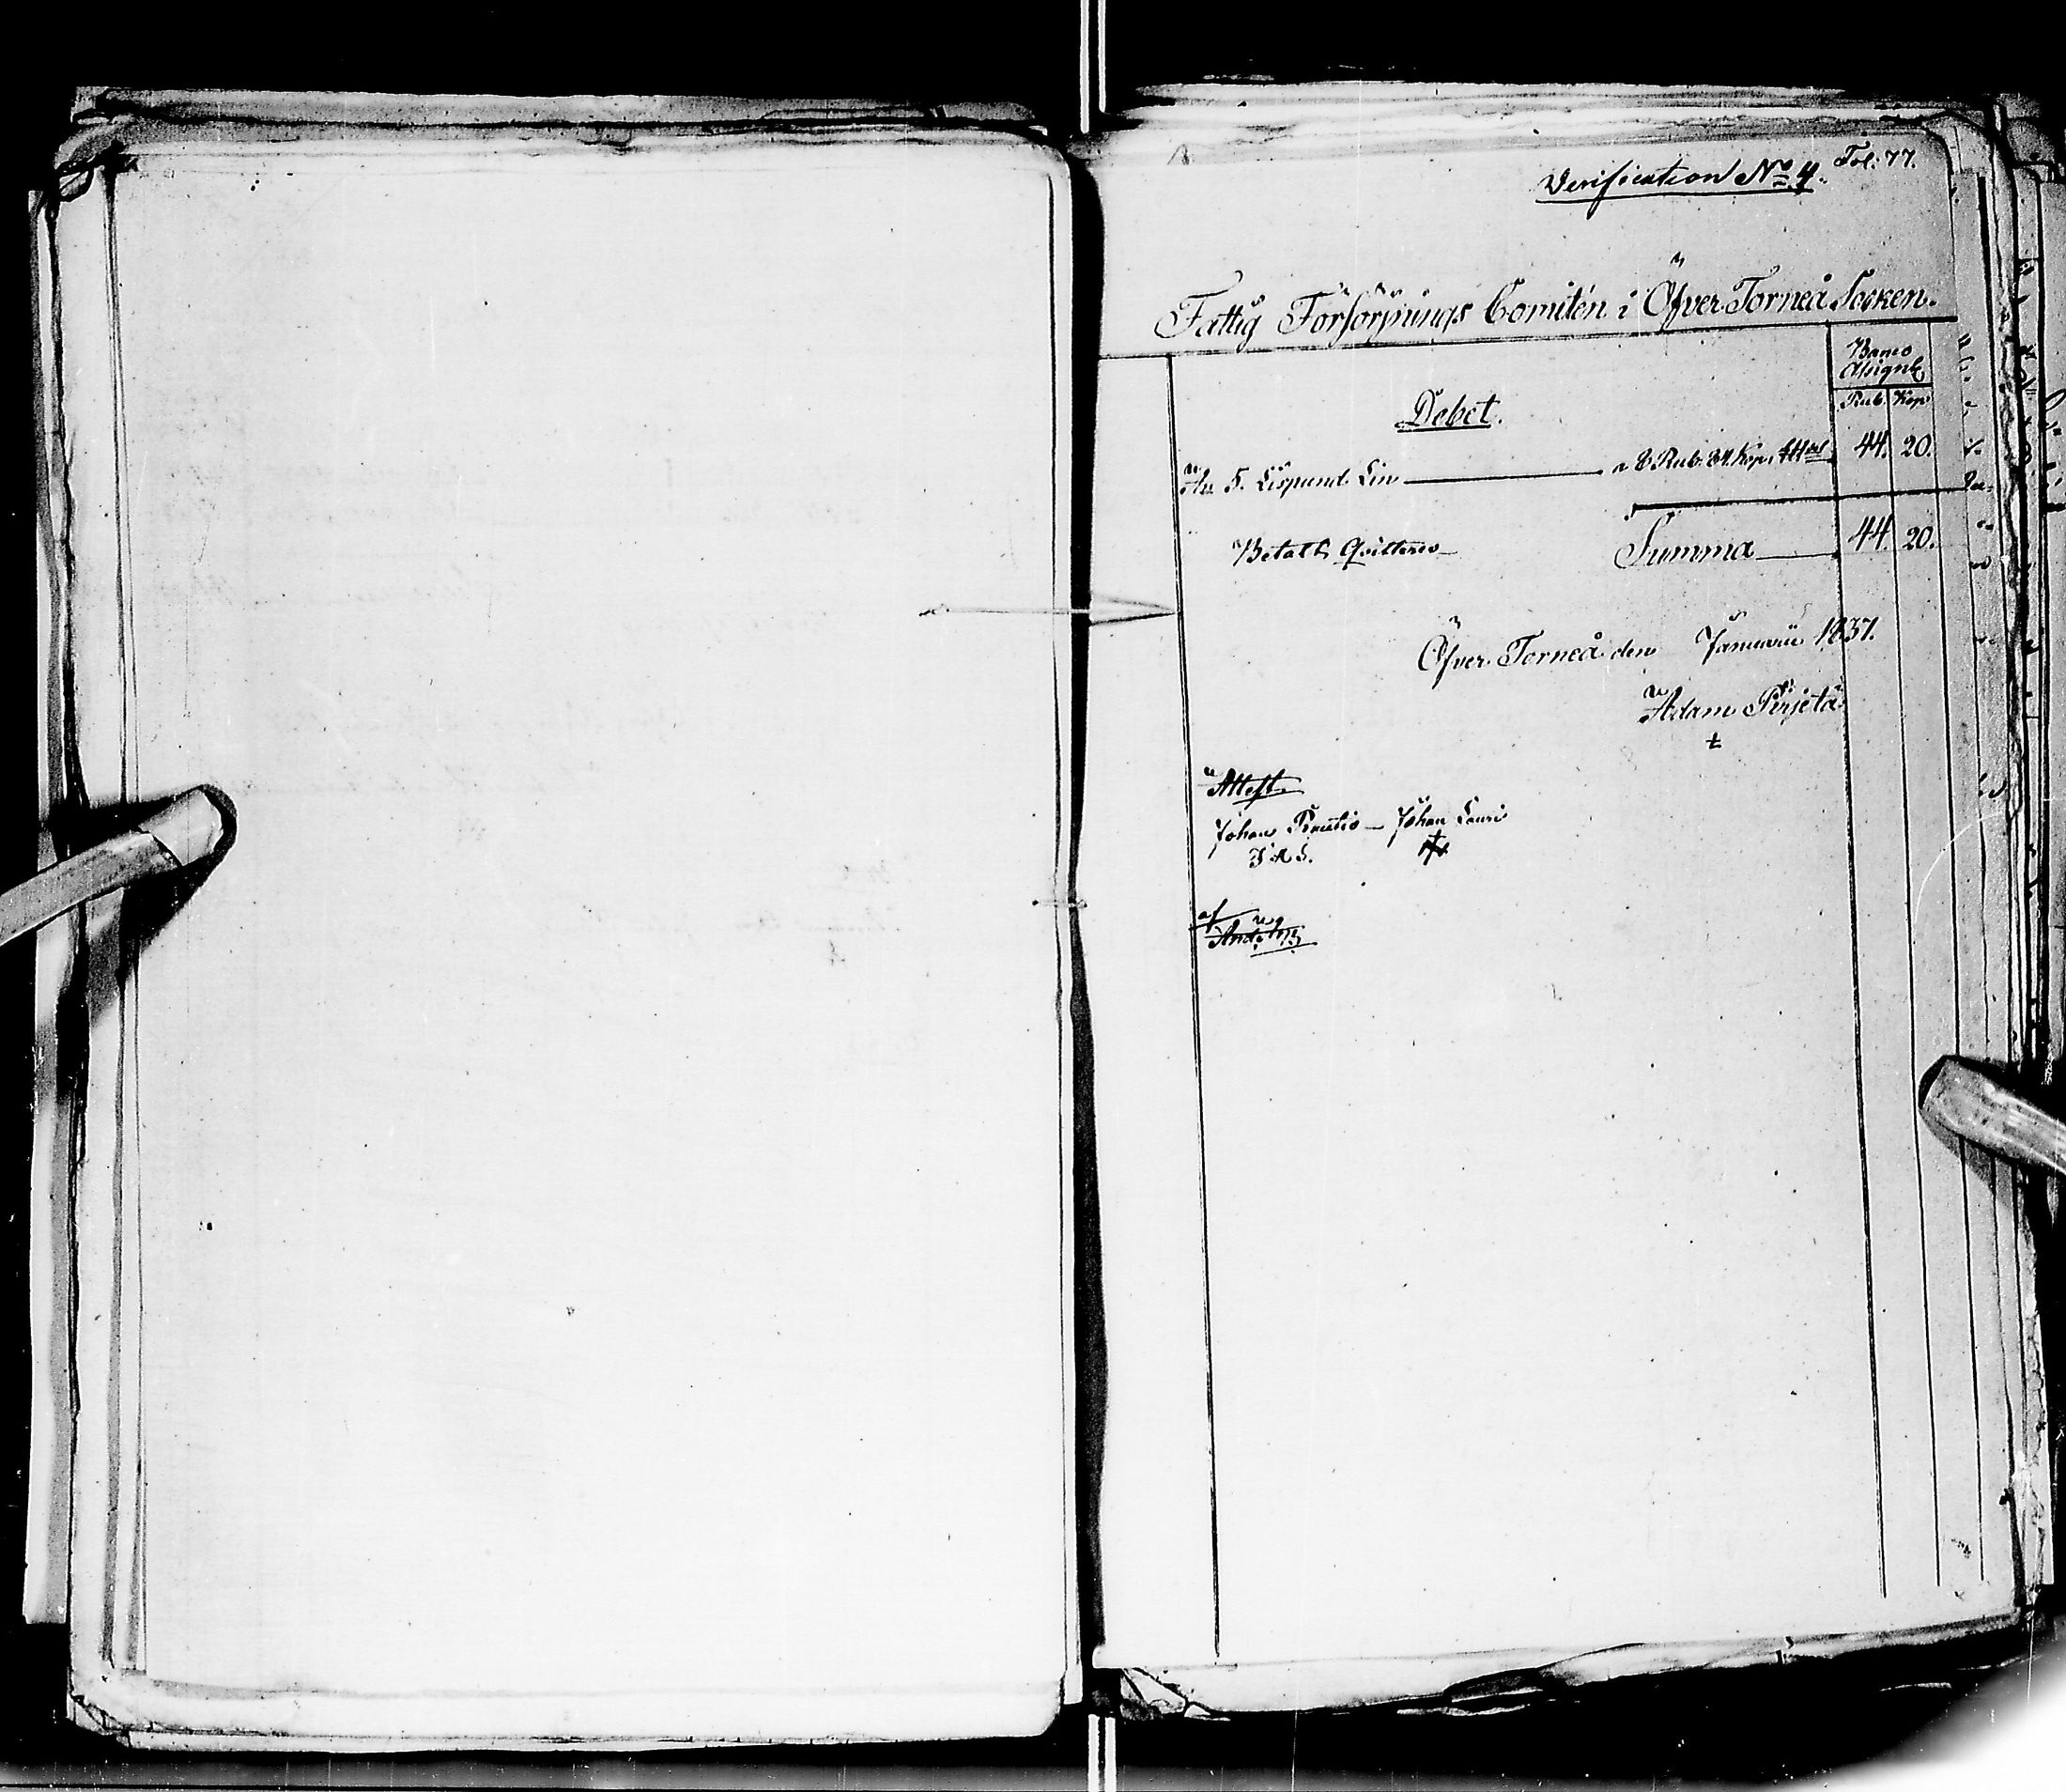 Verification No 4. Fol: 77.
Fattig Försörjnings Comitén i Öfver Torneå Socken.
Banco Assignt
Rub. Kop.
Debet.
An 5. Lispund Lin a 8 Rub. 84. Kop. 44. 20.
Betalt Qvitteres Summa 44. 20.
Öfver Torneå den Januarii 1837.
Adam Pirjetä
Attest.
Johan Johan Lauri